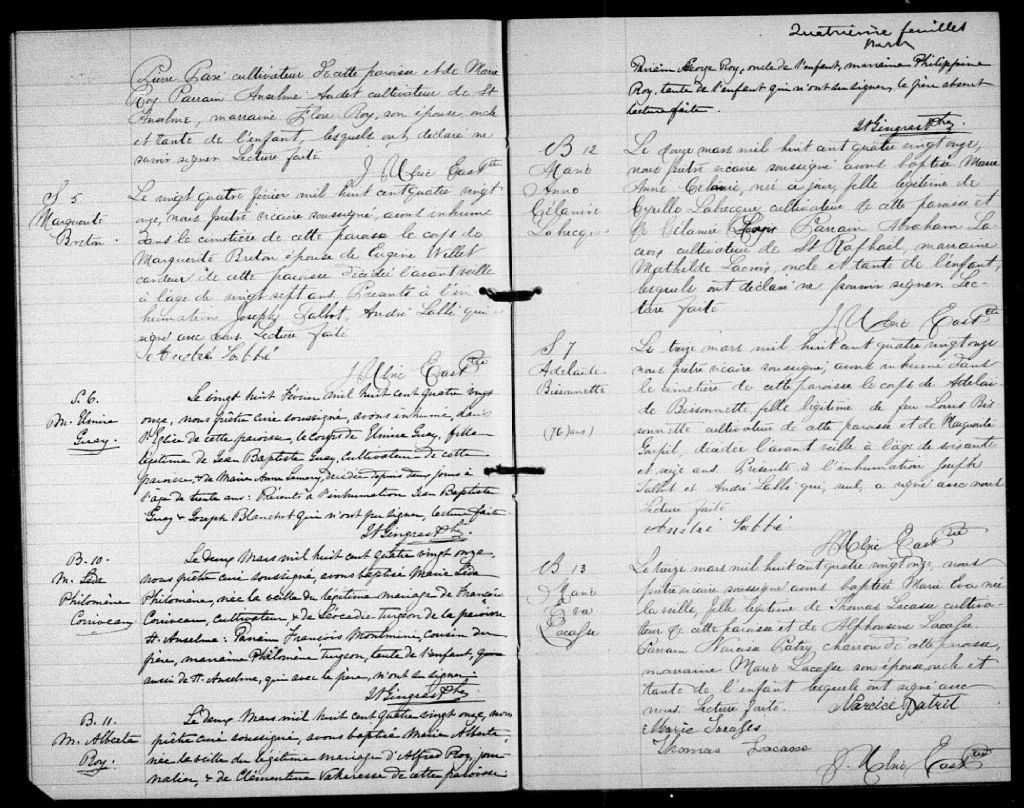 Pierre Paré cultivateur de cette paroisse et de Marie
Roy Parrain Anselme Audet cultivateur de St
Anselme, marraine Flore Roy, son épouse, oncle
et tante de l'enfant, lesquels ont déclaré ne
savoir signer Lecture faite.
J. Ulric East Ptre
S 5
Marguerite
Breton.
Le vingt quatre février mil huit cent quatre vingt
onze, nous prêtre vicaire soussigné, avons inhumé
dans le cimetière de cette paroisse le corps de
Marguerite Breton épouse de Eugène Willet
cardeur de cette paroisse décédée l'avant veille
à l'âge de vingt sept ans. Présents à l'in
humation Joseph Talbot, André Labbé qui a
signé avec nous Lecture faite
André Labbé
J. Ulric East Ptre
S. 6.
M. Elmira
Guay.
Le vingt huit Février mil huit cent quatre vingt
onze, nous prêtre curé soussigné, avons inhumé, dans
l'Eglise de cette paroisse, le corps de Elmire Guay, fille
légitime de Jean Baptiste Guay, cultivateur de cette
paroisse, & de Marie Anne Lemery, décédée depuis trois jours à
l'âge de trente ans: Présents à l'inhumation Jean Baptiste
Guay & Joseph Blanchet qui n'ont pu signer, lecture faite.
Gingras Ptre
B. 10.
M. Léda
Philomène
Corriveau
Le deux Mars mil huit cent quatre vingt onze,
nous prêtre curé soussigné, avons baptisé Marie Léda
Philomène, née la veille du légitime mariage de François
Corriveau, cultivateur, & de Léocadie Turgeon de la paroisse
St. Anselme. Parrain François Montmini, cousin du
père, marraine Philomène Turgeon, tante de l'enfant,
aussi de St. Anselme, qui avec le père, n'ont su signer.
Gingras Ptre
B. 11.
M. Alberta
Roy.
Le deux Mars mil huit cent quatre vingt onze, nous
prêtre curé soussigné, avons baptisé Marie Alberta
née la veille du légitime mariage d'Alfred Roy, jour
nalier, & de Clémentine Vaheresse de cette paroisse:
Quatrième feuillet
Parrain George Roy, oncle de l'enfant, marraine Philippine
Roy, tante de l'enfant qui n'ont su signer, le père absent
lecture faite.
Gingras Ptre
B 12
Marie
Anne
Célanire
Labrecque
Le douze mars mil huit cent quatre vingt onze,
nous prêtre vicaire soussigné avons baptisé Marie
Anne Célanire, née ce jour, fille légitime de
Cyrille Labrecque cultivateur de cette paroisse et
de Célanire Parrain Abraham La-
croix cultivateur de St Raphaël, marraine
Mathilde Lacroix, oncle et tante de l'enfant,
lesquels ont déclaré ne pouvoir signer. Lec-
ture faite
J. Ulric East Ptre
S 7
Adelaïde
Bissonnette
(76) ans)
Le treize mars mil huit cent quatre vingt onze
nous prêtre vicaire soussigné, avons inhumé dans
le cimetière de cette paroisse le corps de Adelaï-
de Bissonnette, fille légitime de feu Louis Bis
sonnette cultivateur de cette paroisse et de Marguerite
Goupil, décédée l'avant veille à l'âge de soixante
et seize ans. Présents à l'inhumation Joseph
Talbot et André Labbé qui, seul, a signé avec nous
Lecture faite
André Labbé
J. Ulric East Ptre
B 13
Marie
Eva
Lacasse
Le treize mars mil huit cent quatre vingt onze, nous
prêtre vicaire soussigné avons baptisé Marie Eva née
la veille, fille légitime de Thomas Lacasse cultiva-
teur de cette paroisse et de Alphonsine Lacasse.
Parrain Narcisse Patry charron de cette paroisse,
marraine Marie Lacasse son épouse, oncle et
tante de l'enfant lesquels ont signé avec
nous. Lecture faite. Narcice Patrit
Marie Lacasse
Thomas Lacasse
J. Ulric East Ptre